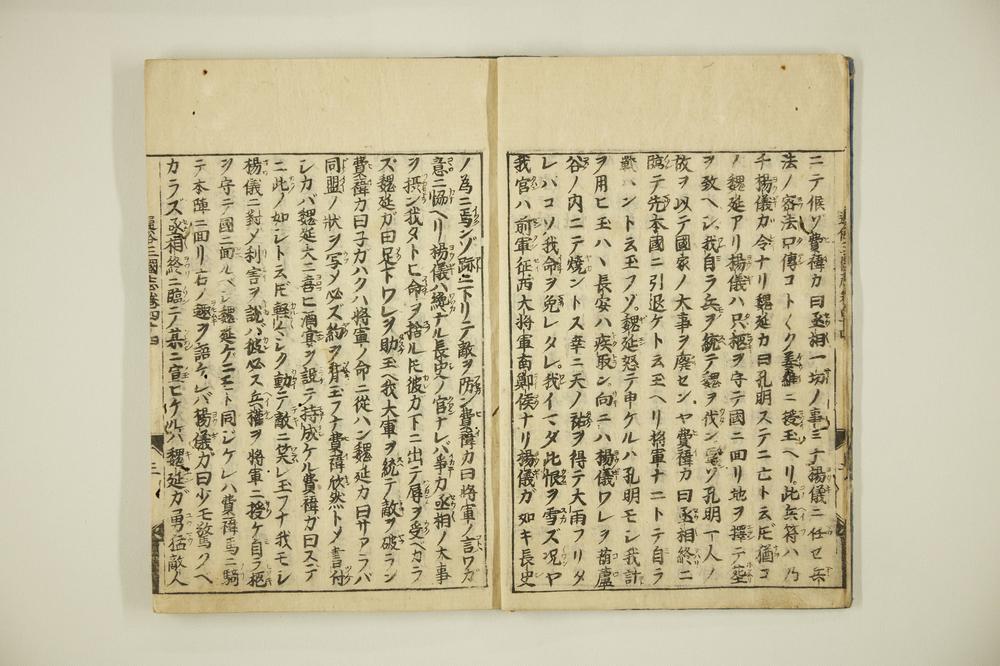 ニテ候ゾ費褘カ曰丞相一切ノ事ミナ揚儀ニ任セ兵
法ノ密法口傳コト〱ク姜維ニ授玉ヘリ此兵符ハ乃
千揚儀カ令ナリ魏延カ曰孔明ステニ亡ト云𪜈猶コ
ノ魏延アリ揚儀ハ只柩ヲ守テ國ニ回リ地ヲ擇テ葬
ヲ致ヘシ我自ラ兵ヲ統テ魏ヲ伐ン寧ゾ孔明一人ノ
故ヲ以テ國家ノ大事ヲ廢センヤ費褘カ曰丞相終ニ
臨テ先本國ニ引退ケト云玉ヘリ将軍ナニトテ自ラ
戦ハント云玉フゾ魏延怒テ申ケルハ孔明モシ我計
ヲ用ヒ玉ハヽ長安ハ疾取ン向ニハ揚儀ワレヲ葫蘆
谷ノ内ニテ焼ントス幸ニ天ノ祐ヲ得テ大雨フリタ
レバコソ我命ヲ免レタレ我イマダ此恨ヲ雪ズ况ヤ
我官ハ前軍征西大将軍南鄭侯ナリ揚儀ガ如キ長史
ノ為ニ焉ンゾ跡ニ下リテ敵ヲ防ン費褘カ曰将軍ノ言ワガ
意ニ恊ヘリ揚儀ハ纔ナル長史ノ官ナレバ争カ丞相ノ大事
ヲ摂ン我タトヒ命ヲ捨ルトモ彼カ下ニ出テ辱ヲ受ベカラ
ズ魏延ガ曰足下ワレヲ助玉ヘ我大軍ヲ統テ敵ヲ破ラン
費褘カ曰子カハクハ将軍ノ命ニ從ハン魏延カ曰サアラバ
同盟ノ狀ヲ写メ必ズ約ヲ背玉フナ費褘欣然トメ書付
シカバ魏延大ニ喜ヒ酒宴ヲ設テ持成ケル費褘カ曰ステ
ニ此ノ如シト云𪜈輕々シク動テ敵ニ笑レ玉フナ我モシ
揚儀ニ對メ利害ヲ說バ彼必ス兵權ヲ将軍ニ授ケ自ラ柩
ヲ守テ國ニ回ルヘシ魏延ゲニモト同シケレハ費褘馬ニ騎
テ本陣ニ回リ右ノ趣ヲ語ケレバ揚儀カ曰少モ驚クヘ
カラズ丞相終ニ臨テ某ニ宣ヒケルハ魏延ガ勇猛敵人